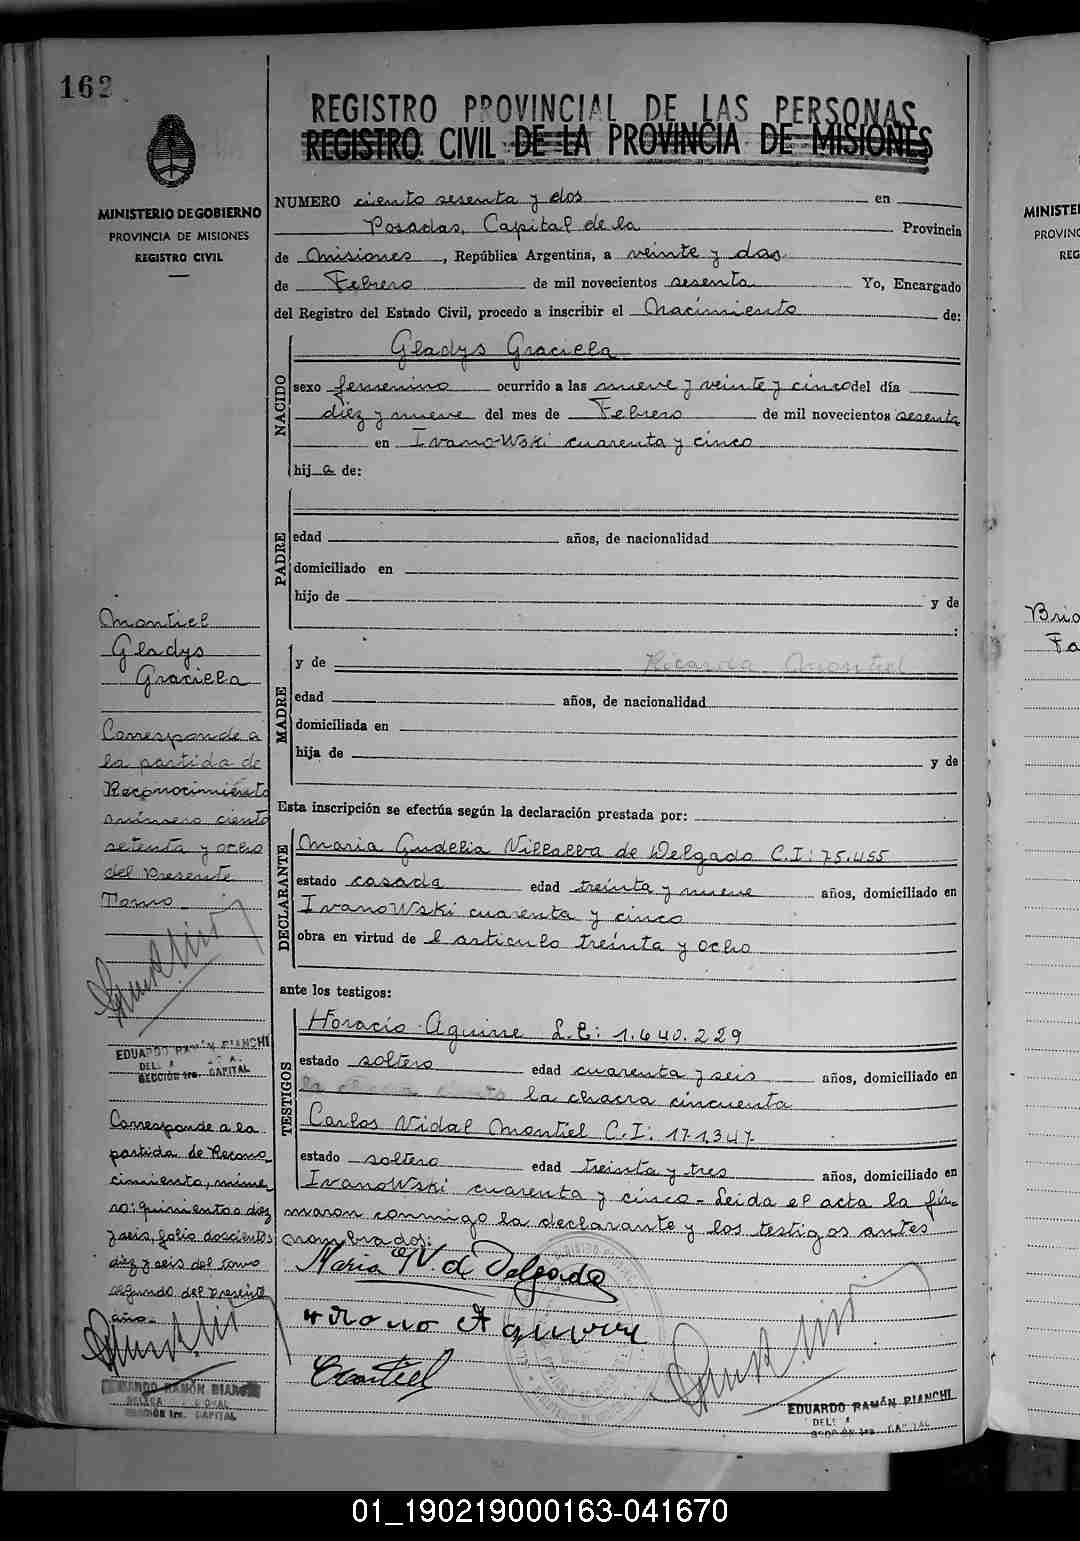 162
REGISTRO PROVINCIAL DE LAS PERSONAS
REGISTRO CIVIL DE LA PROVINCIA DE MISIONES
MINISTERIO DE GOBIERNO
PROVINCIA DE MISIONES
REGISTRO CIVIL
NUMERO ciento sesenta y dos en
Posadas, Capital de la Provincia
de Misiones, República Argentina, a veinte y dos
de Febrero de mil novecientos sesenta Yo, Encargado
del Registro del Estado Civil, procedo a inscribir el Nacimiento de:
NACIDO
Gladys Graciela
sexo femenino ocurrido a las nueve y veinte y cinco del día
diez y nueve del mes de Febrero de mil novecientos sesenta
en IvanoWski cuarenta y cinco
hij a de:
PADRE
edad años, de nacionalidad
domiciliado en
hijo de y de
:
MADRE
y de Ricarda Montiel
edad años, de nacionalidad
domiciliada en
hija de y de
Esta inscripción se efectúa según la declaración prestada por:
DECLARANTE
Maria Gudelia Villalba de Delgado C.I: 75.455
estado casada edad treinta y nueve años, domiciliado en
IvanoWski cuarenta y cinco
obra en virtud de l articulo treinta y ocho
ante los testigos:
TESTIGOS
Horacio Aguirre L.E: 1.640.229
estado soltero edad cuarenta y seis años, domiciliado en
la chacra la chacra cincuenta
Carlos Vidal Montiel C.I: 171.347
estado soltero edad treinta y tres años, domiciliado en
IvanoWski cuarenta y cinco - Leida el acta la fir-
maron conmigo la declarante y los testigos antes
nombrados:
Maria G V de Delgado
Aguirre
CMontiel
EDUARDO RAMÓN BIANCHI
SECCIÓN 1ra. CAPITAL
Montiel
Gladys
Graciela
Corresponde a
la partida de
Reconocimiento
número ciento
setenta y ocho
del presente
Tomo
EDUARDO RAMÓN BIANCHI
SECCIÓN 1ra. CAPITAL
Corresponde a la
partida de Recono-
cimiento, núme-
ro: quinientos diez
y seis, folio doscientos
diez y seis del tomo
segundo del presente
año.-
EDUARDO RAMÓN BIANCHI
SECCIÓN 1ra. CAPITAL
MINISTE
PROVIN
REG
Brio
Fa
01_190219000163-041670